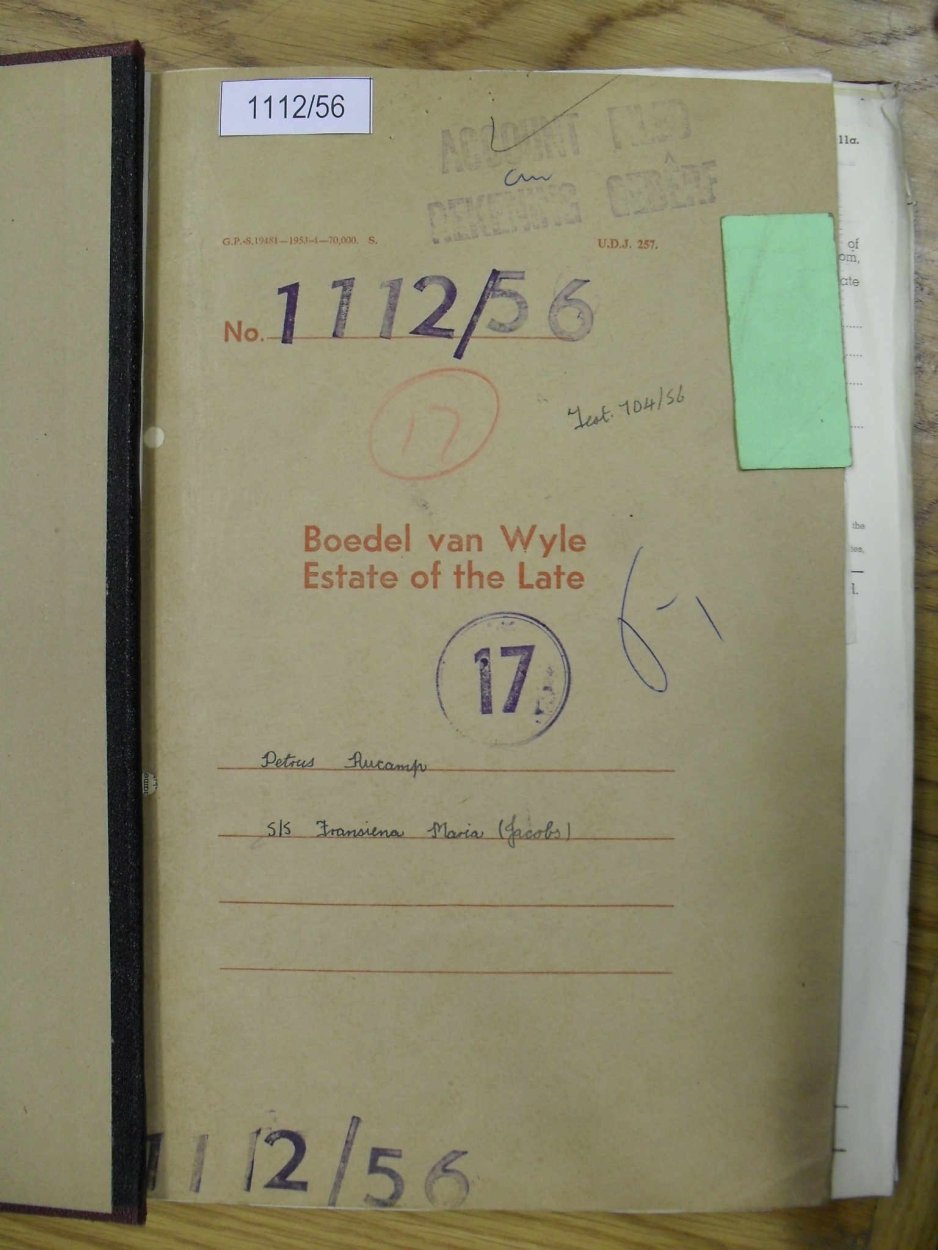 1112/56
ACCOUNT FILED
REKENING GEDEPT
G.P.-S.19481—1953-4—70,000. S.
U.D.J. 257.
No. 1112/56
17
Test. 704/56
Boedel van Wyle
Estate of the Late
17
Petrus Aucamp
S/S Fransiena Maria (Jacobs)
1112/56
11a.
of
om,
ate
the
tes,